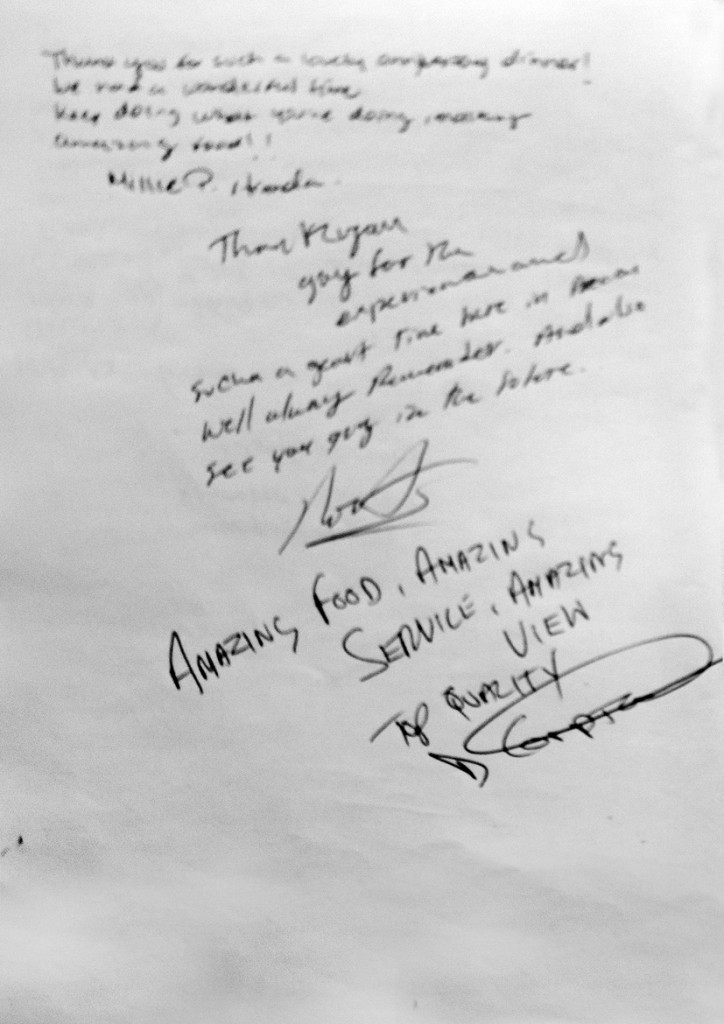 Thank you for such a lovely anniversary dinner!
We had a wonderful time
Keep doing what you're doing, making
amazing food!!
Millie
Thank you
guy for the
experience and
such a great time here in
we'll always Remember. And also
see you guy in the future.
AMAZING FOOD, AMAZING
SERVICE, AMAZING
VIEW
TOP QUALITY